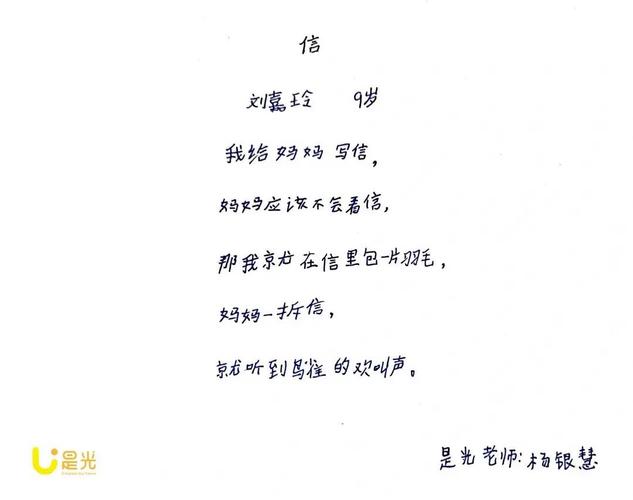 信
刘嘉玲 9岁
我给妈妈写信，
妈妈应该不会看信，
那我就在信里包一片羽毛，
妈妈一拆信，
就听到鸟雀的欢叫声。
是光
是光老师：杨银慧